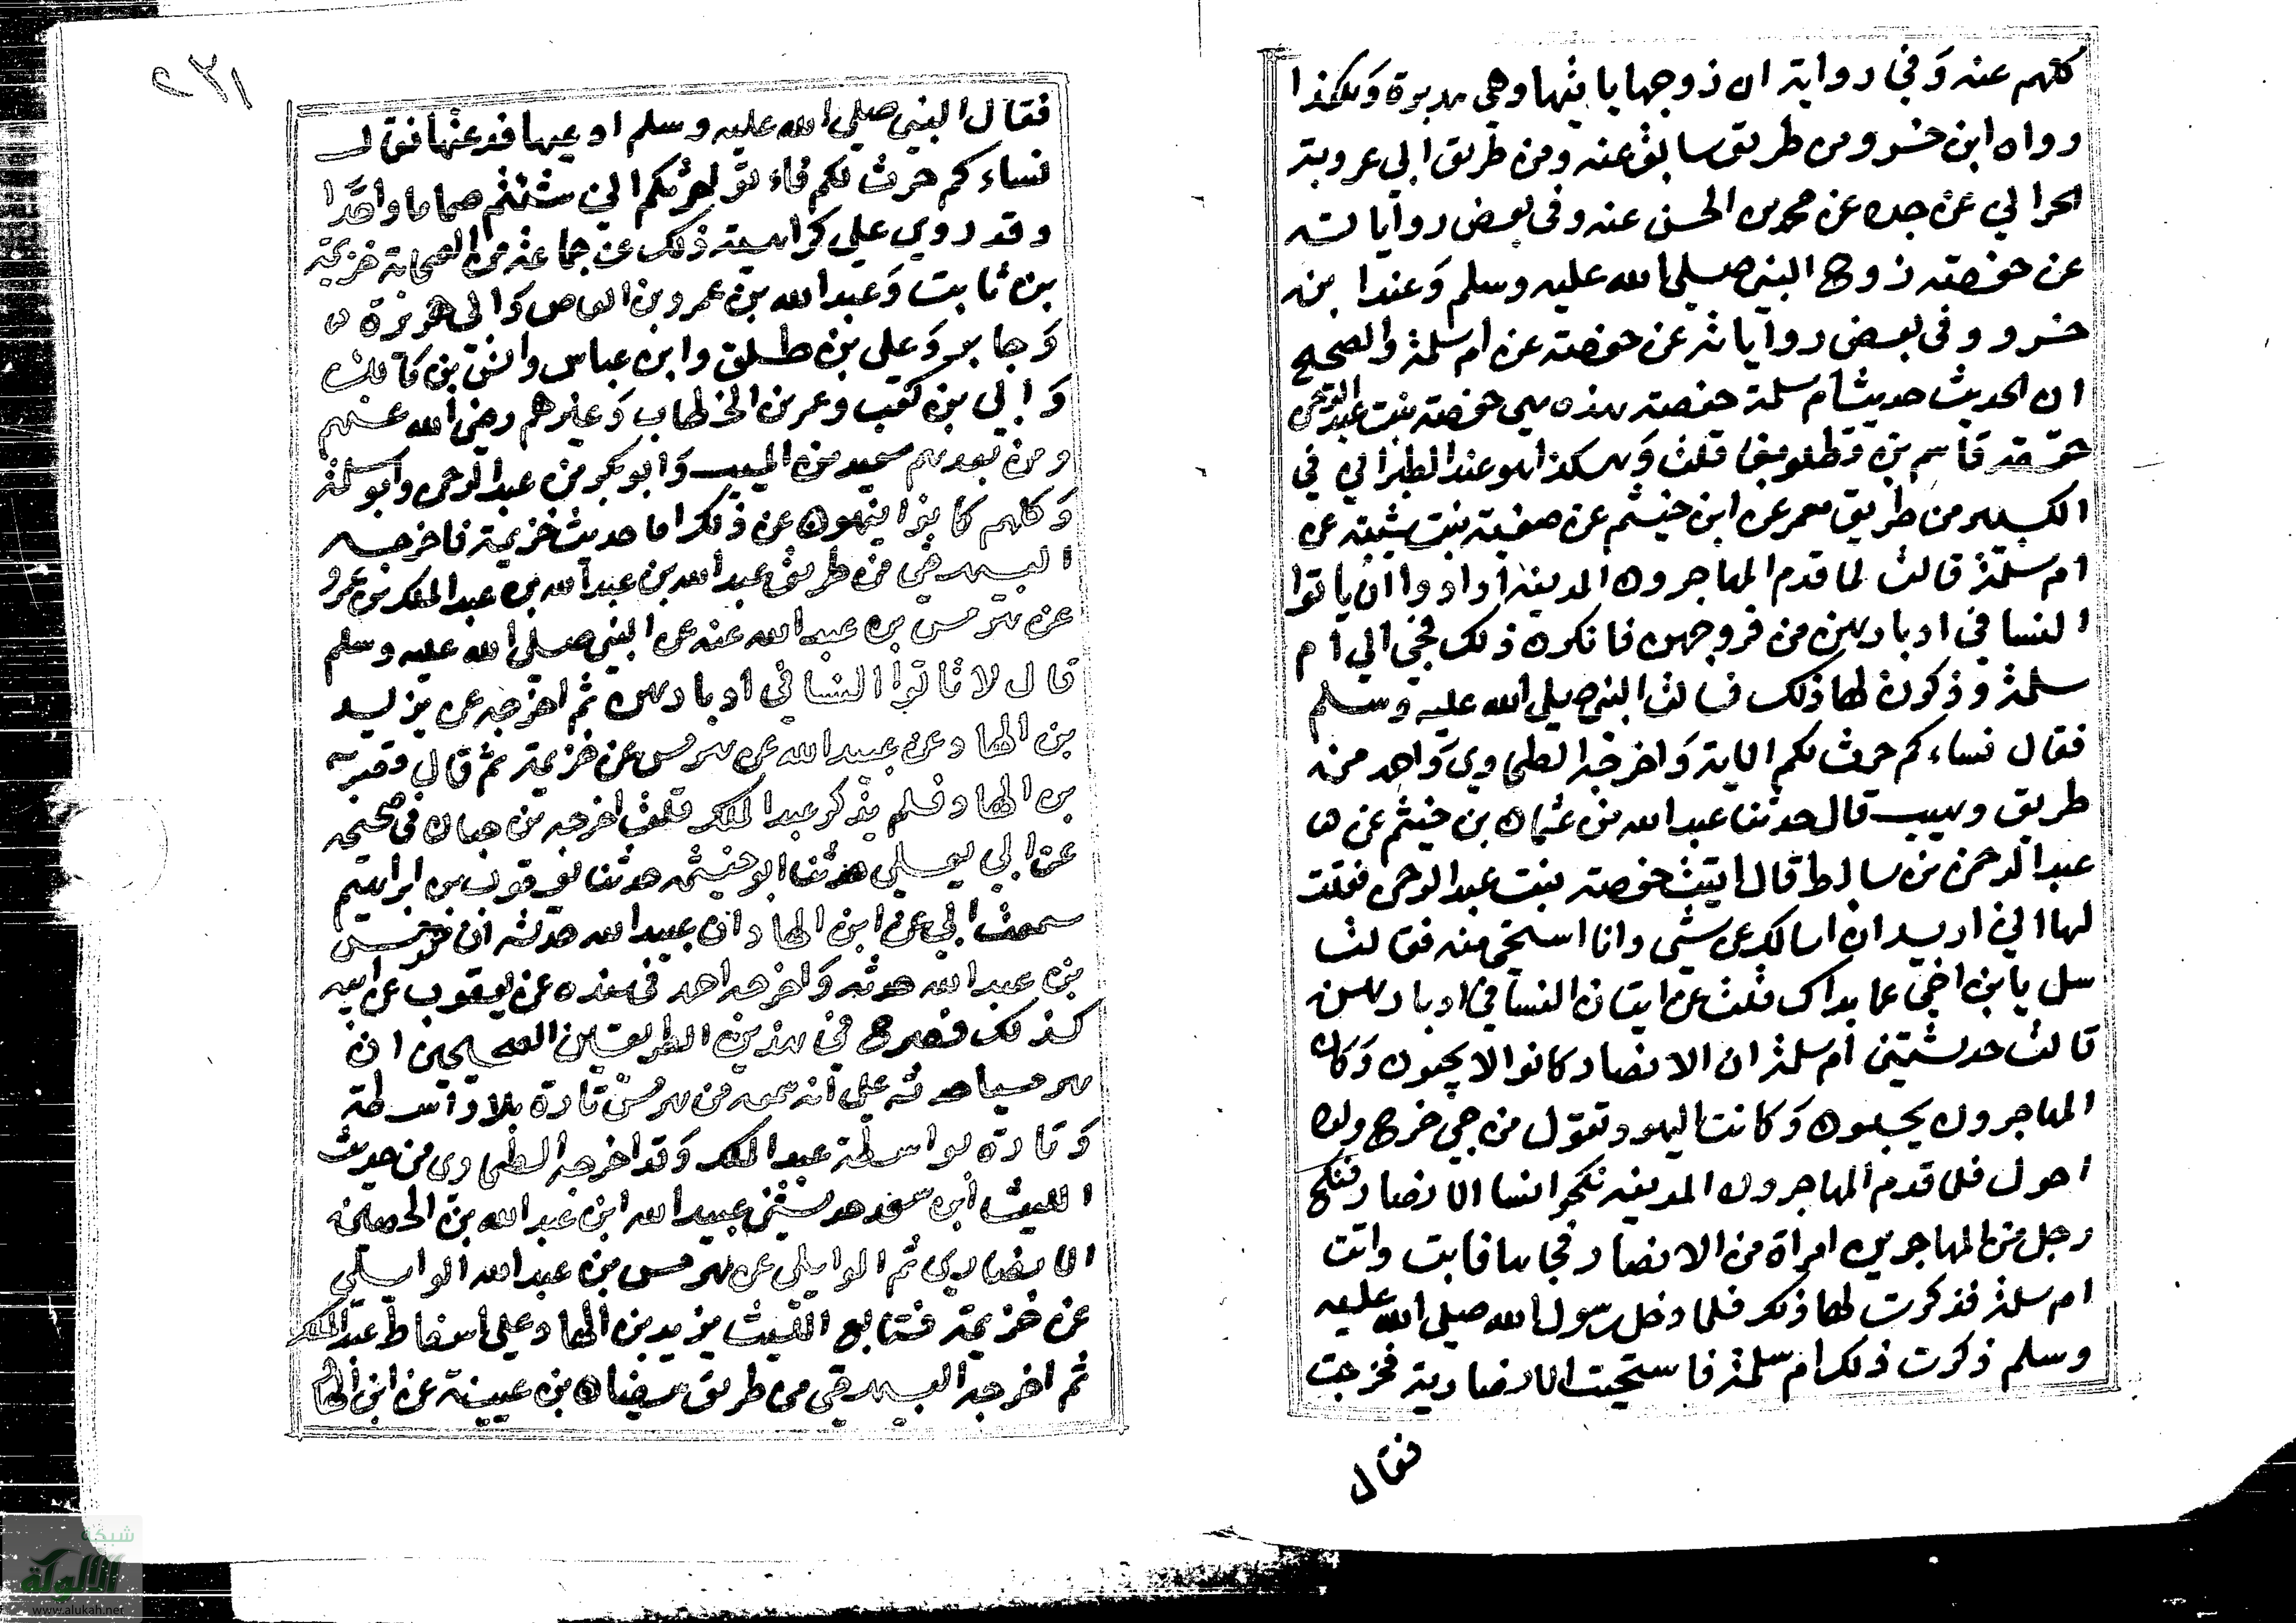 كلهم عنه وفي رواية ان زوجها ياتيها وهي مدبرة وهكذا
رواه ابن خسرو من طريق سابق عنه ومن طريق ابي عروبة
الحراني عن جده عن محمد بن الحسن عنه وفي بعض رواياته
عن حفصة زوج النبي صلى الله عليه وسلم وعند ابن
خسرو وفي بعض رواياته عن حفصة عن ام سلمة والصحيح
ان الحديث حديث ام سلمة حفصة هذه هي حفصة بنت عبد الرحمن
حققه قاسم بن قطلوبغا قلت وهكذا هو عند الطبراني في
الكبير من طريق معمر عن ابن خيثم عن صفية بنت شيبة عن
ام سلمة قالت لما قدم المهاجرون المدينة ارادوا ان ياتوا
النسا في ادبارهن من فروجهن فانكرن ذلك فجئن الي ام
سلمة وذكرن لها ذلك فسالت النبي صلى الله عليه وسلم
فقال نساءكم حرث لكم الاية واخرجه الطحاوي واحمد من
طريق وهيب قال حدثنا عبد الله بن عثمان بن خيثم عن
عبد الرحمن بن سابط قال اتيت حفصة بنت عبد الرحمن فقلت
لها اني اريد ان اسالك عن شي وانا استحي منه فقالت
سل يا بن اخي عما بداك قلت عن اتيان النسا في ادبارهن
قالت حدثتني ام سلمة ان الانصار كانوا لا يجبون وكان
المهاجرون يجبون وكانت اليهود تقول من جبى خرج ولده
احول فلما قدم المهاجرون المدينة نكحوا نسا الانصار فنكح
رجل من المهاجرين امراة من الانصار فجباها فابت واتت
ام سلمة فذكرت لها ذلك فلما دخل رسول الله صلى الله عليه
وسلم ذكرت ذلك ام سلمة فاستحيت الانصارية فخرجت
فقال
٢٣١
فقال النبي صلى الله عليه وسلم ادعيها فدعتها فقال
نساءكم حرث لكم فاءتو حرثكم اني شئتم صماما واحدا
وقد روي علي كراهية ذلك عن جماعة من الصحابة خزيمة
بن ثابت وعبد الله بن عمرو بن العاص وابي هريرة
وجابر وعلي بن طلق وابن عباس وانس بن مالك
وابي بن كعب وعمر بن الخطاب وغيرهم رضي الله عنهم
ومن بعدهم سعيد بن المسيب وابو بكر بن عبد الرحمن وابو سلمة
وكلهم كانوا ينهون عن ذلك اما حديث خزيمة فاخرجه
البيهقي من طريق عبد الله بن عبد الله بن عبد الملك بن عمرو
عن هرمس بن عبد الله عنه عن النبي صلى الله عليه وسلم
قال لا تاتوا النسا في ادبارهن ثم اخرجه عن يزيد
بن الهاد عن عبيد الله عن هرمس عن خزيمة ثم قال وقصر به
بن الهاد فلم يذكر عبد الملك قلت اخرجه بن حبان في صحيحه
عن ابي يعلي حدثنا ابو خيثمة حدثنا يعقوب بن ابراهيم
سمعت ابي عن ابن الهاد ان عبيد الله حدثه ان هرمس
بن عبد الله حدثه واخرجه احمد في مسنده عن يعقوب عن ابيه
كذلك فصرح في هذين الطريقين الصحيحين ان
هرمسا حدثه علي انه سمعه من هرمس تارة بلا واسطة
وتارة بواسطة عبد الملك وقد اخرجه الطحاوي من حديث
الليث ابن سعد حدثني عبيد الله ابن عبد الله بن الحصين
الانصاري ثم الوايلي عن هرمس بن عبد الله الوايلي
عن خزيمة فتابع الليث يزيد بن الهاد علي اسقاط عبد الملك
ثم اخرجه البيهقي من طريق سفيان بن عيينة عن ابن الهاد
شبكة
الألوكة
www.alukah.net